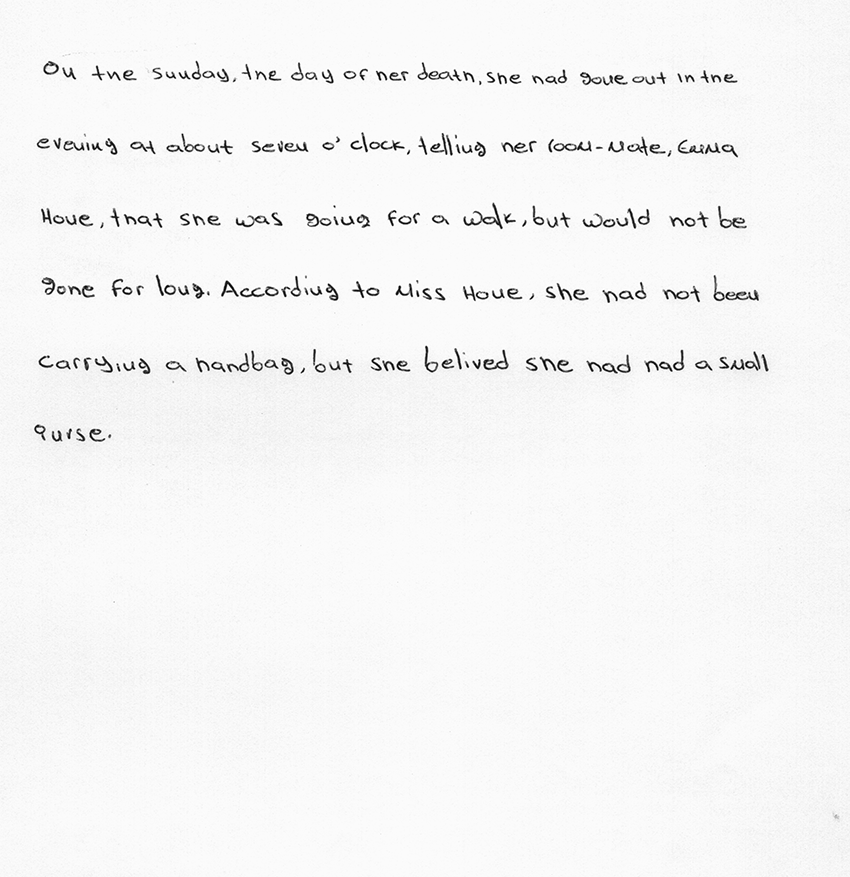 On the Sunday, the day of her death, she had gone out in the
evening at about seven o'clock, telling her room-mate, Erima
Hone, that she was going for a walk, but would not be
gone for long. According to Miss Hone, she had not been
carrying a handbag, but she belived she had had a small
purse.